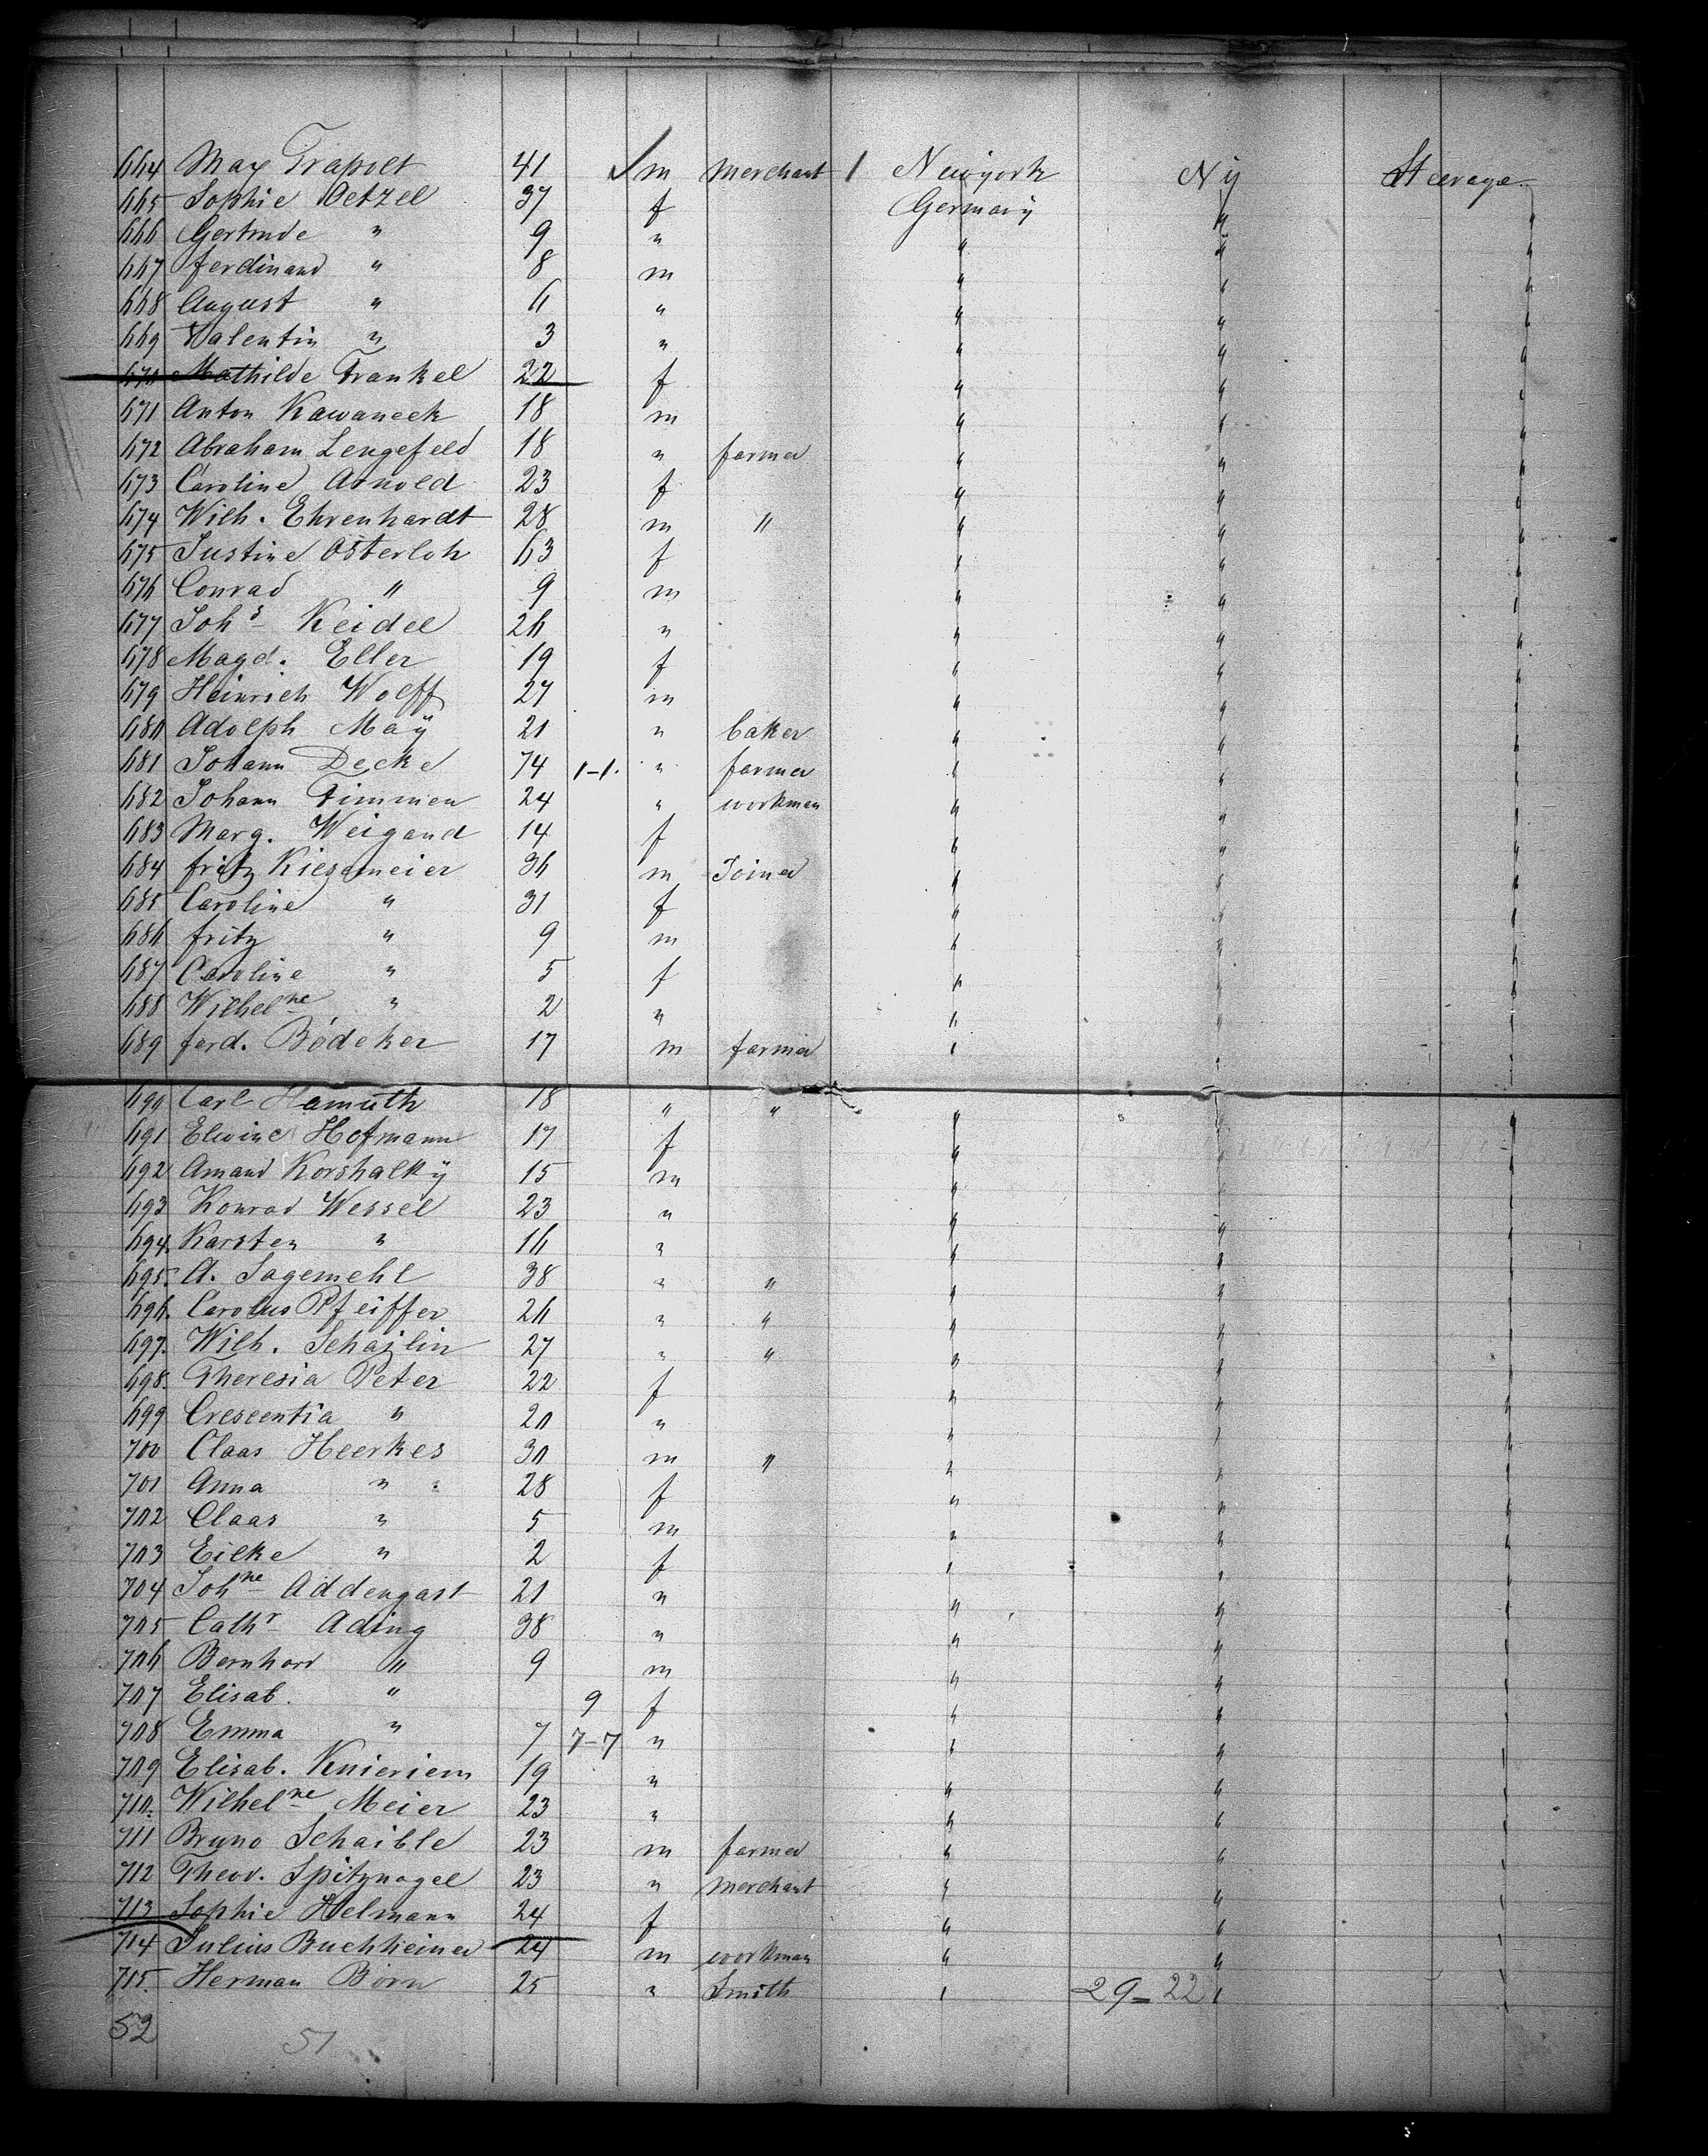 664 Max Trapolt 41 m merchant 1 Newyork Ny Steerage
665 Sophie Oetzel 37 f Germany " "
666 Gertrude " 9 " " " "
667 ferdinand " 8 m " " "
668 August " 6 " " " "
669 Valentin " 3 " " " "
670 Mathilde Frankel 22 f " " "
671 Anton Kawaneck 18 m " " "
672 Abraham Lengefeld 18 " farmer " " "
673 Caroline Arnold 23 f " " "
674 Wilh. Ehrenhardt 28 m " " " "
675 Justine Osterloh 63 f " " "
676 Conrad " 9 m " " "
677 Johs Keidel 26 " " " "
678 Magd. Eller 19 f " " "
679 Heinrich Wolff 27 m " " "
680 Adolph Maÿ 21 " baker " " "
681 Johann Decke 74 1-1. " farmer " " "
682 Johann Timmen 24 " workman " " "
683 Marg. Weigand 14 f " " "
684 fritz Kiesameier 36 m Joiner " " "
685 Caroline " 31 f " " "
686 fritz " 9 m " " "
687 Caroline " 5 f " " "
688 Wilhelne " 2 " " " "
689 ferd. Bödeker 17 m farmer " " "
690 Carl Hamuth 18 " " " " "
691 Elwine Hofmann 17 f " " "
692 Amand Korshalkÿ 15 m " " "
693 Konrad Wessel 23 " " " "
694. Karsten " 16 " " " "
695. A. Sagemehl 38 " " " " "
696. Carolus Pfeiffer 26 " " " " "
697. Wilh. Schajlin 27 " " " " "
698. Theresia Peter 22 f " " "
699 Crescentia " 20 " " " "
700 Claas Heerkes 30 m " " " "
701 Anna " 28 f " " "
702 Claas " 5 m " " "
703 Eilke " 2 f " " "
704 Johne Addengast 21 " " " "
705 Cathr Ading 38 " " " "
706 Bernhard " 9 m " " "
707 Elisab. " 9 f " " "
708 Emma " 7 7-7 " " " "
709 Elisab. Knieriem 19 " " " "
710. Wilhelne Meier 23 " " " "
711 Bruno Schaible 23 m farmer " " "
712 Theod. Spitznagel 23 " merchant " " "
713 Sophie Helmann 24 f " " "
714 Julius Buchheimer 24 m workman " " "
715. Herman Born 25 " Smith " 29-22 " "
52 51